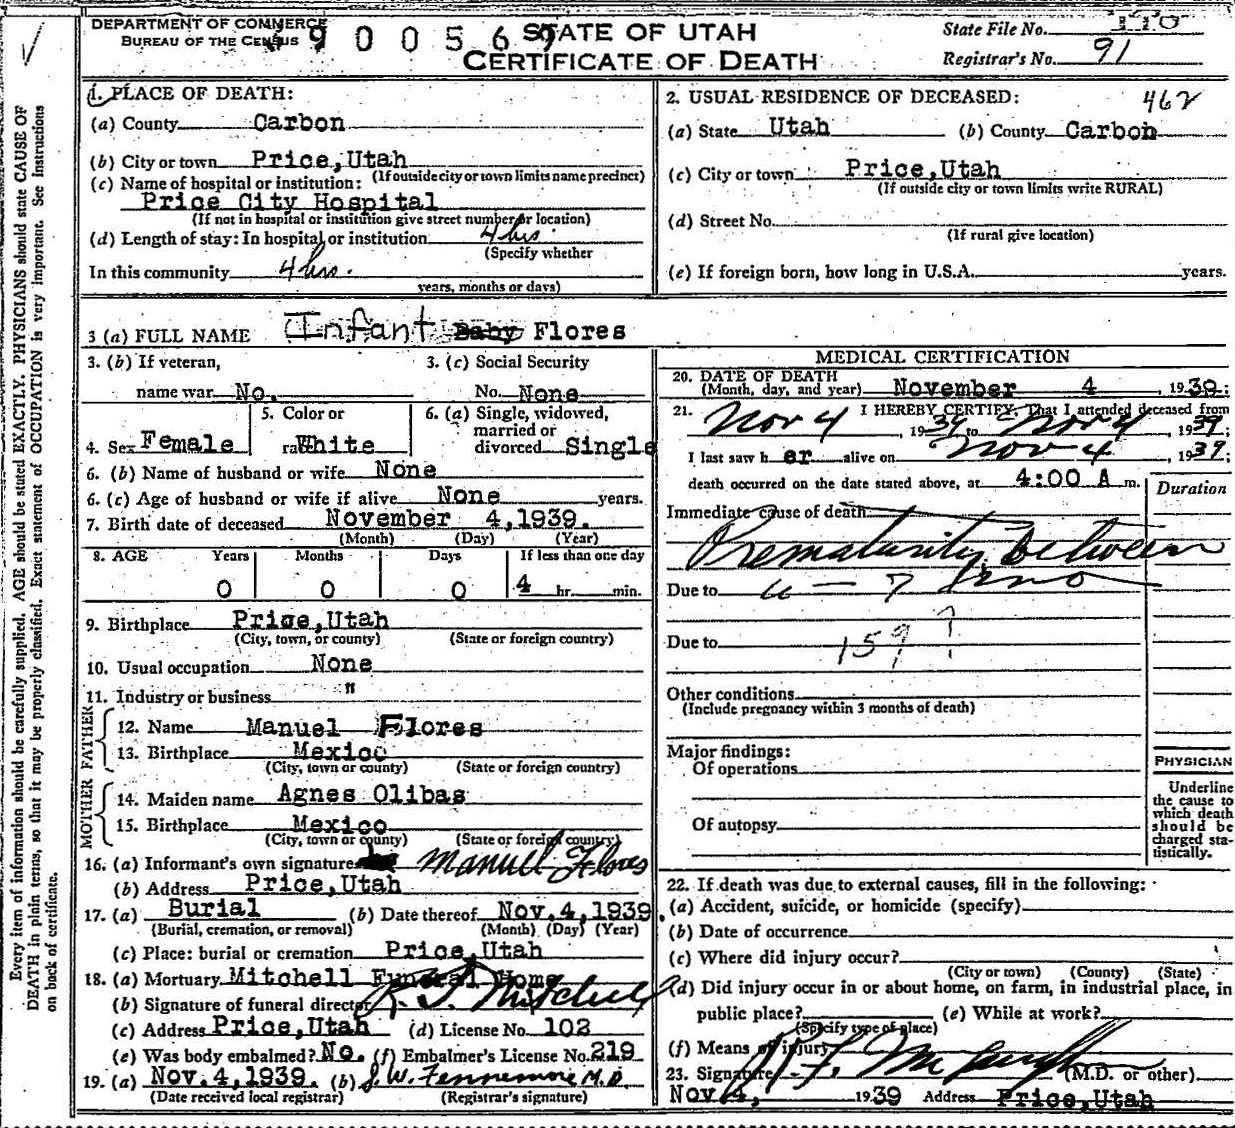 DEPARTMENT OF COMMERCE
BUREAU OF THE CENSUS
9 0 0 5 6
STATE OF UTAH
CERTIFICATE OF DEATH
State File No.
Registrar's No. 91
462
√
Every item of information should be carefully supplied. AGE should be stated EXACTLY. PHYSICIANS should state CAUSE OF
DEATH in plain terms, so that it may be properly classified. Exact statement of OCCUPATION is very important. See instructions
on back of certificate.
1. PLACE OF DEATH:
(a) County Carbon
(b) City or town Price,Utah
(If outside city or town limits name precinct)
(c) Name of hospital or institution:
Price City Hospital
(If not in hospital or institution give street number or location)
(d) Length of stay: In hospital or institution 4 hrs.
(Specify whether
In this community 4 hrs.
years, months or days)
2. USUAL RESIDENCE OF DECEASED:
(a) State Utah (b) County Carbon
(c) City or town Price,Utah
(If outside city or town limits write RURAL)
(d) Street No.
(If rural give location)
(e) If foreign born, how long in U.S.A. years.
3 (a) FULL NAME Infant Baby Flores
3. (b) If veteran,
name war No.
3. (c) Social Security
No. None
4. Sex Female
5. Color or
race White
6. (a) Single, widowed,
married or
divorced Single
6. (b) Name of husband or wife None
6. (c) Age of husband or wife if alive None years.
7. Birth date of deceased November 4,1939.
(Month) (Day) (Year)
8. AGE Years Months Days If less than one day
0 0 0 4 hr. min.
9. Birthplace Price,Utah
(City, town, or county) (State or foreign country)
10. Usual occupation None
11. Industry or business "
FATHER
12. Name Manuel Flores
13. Birthplace Mexico
(City, town or county) (State or foreign country)
MOTHER
14. Maiden name Agnes Olibas
15. Birthplace Mexico
(City, town or county) (State or foreign country)
16. (a) Informant's own signature Manuel Flores
(b) Address Price,Utah
17. (a) Burial (b) Date thereof Nov.4,1939.
(Burial, cremation, or removal) (Month) (Day) (Year)
(c) Place: burial or cremation Price,Utah
18. (a) Mortuary Mitchell Funeral Home
(b) Signature of funeral director R. J. Mitchell
(c) Address Price,Utah (d) License No. 102
(e) Was body embalmed? No. (f) Embalmer's License No. 219
19. (a) Nov.4,1939. (b) J. W. Fennemore M.D.
(Date received local registrar) (Registrar's signature)
MEDICAL CERTIFICATION
20. DATE OF DEATH
(Month, day, and year) November 4, 1939;
21. I HEREBY CERTIFY, That I attended deceased from
Nov 4, 1939 to Nov 4, 1939;
I last saw her alive on Nov 4, 1939;
death occurred on the date stated above, at 4:00 A m.
Duration
Immediate cause of death
Prematurity between
Due to 6 - 7 mo
Due to 159 ?
Other conditions
(Include pregnancy within 3 months of death)
Major findings:
Of operations
Of autopsy
PHYSICIAN
Underline
the cause to
which death
should be
charged sta-
tistically.
22. If death was due to external causes, fill in the following:
(a) Accident, suicide, or homicide (specify)
(b) Date of occurrence
(c) Where did injury occur?
(City or town) (County) (State)
(d) Did injury occur in or about home, on farm, in industrial place, in
public place? (e) While at work?
(Specify type of place)
(f) Means of injury
23. Signature (M.D. or other)
Nov 4, 1939 Address Price,Utah